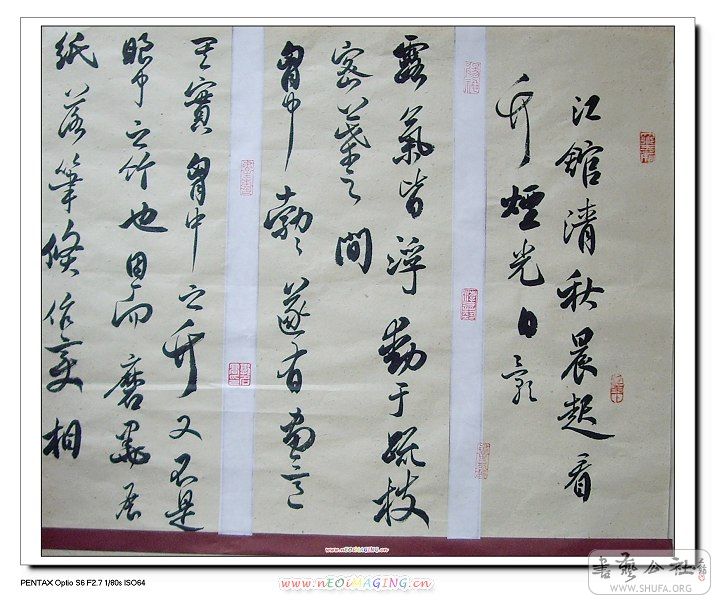 江館清秋晨起看
竹煙光日影
露氣皆浮動于疏枝
密葉之間
胸中勃々遂有畫意
其實胸中之竹又不是
眼中之竹也因而磨墨展
紙落筆倏作變相
www.nEOiMAGING.cn
PENTAX Optio S6 F2.7 1/60s ISO64
www.nEOiMAGING.cn
書藝公社
WWW.SHUFA.ORG